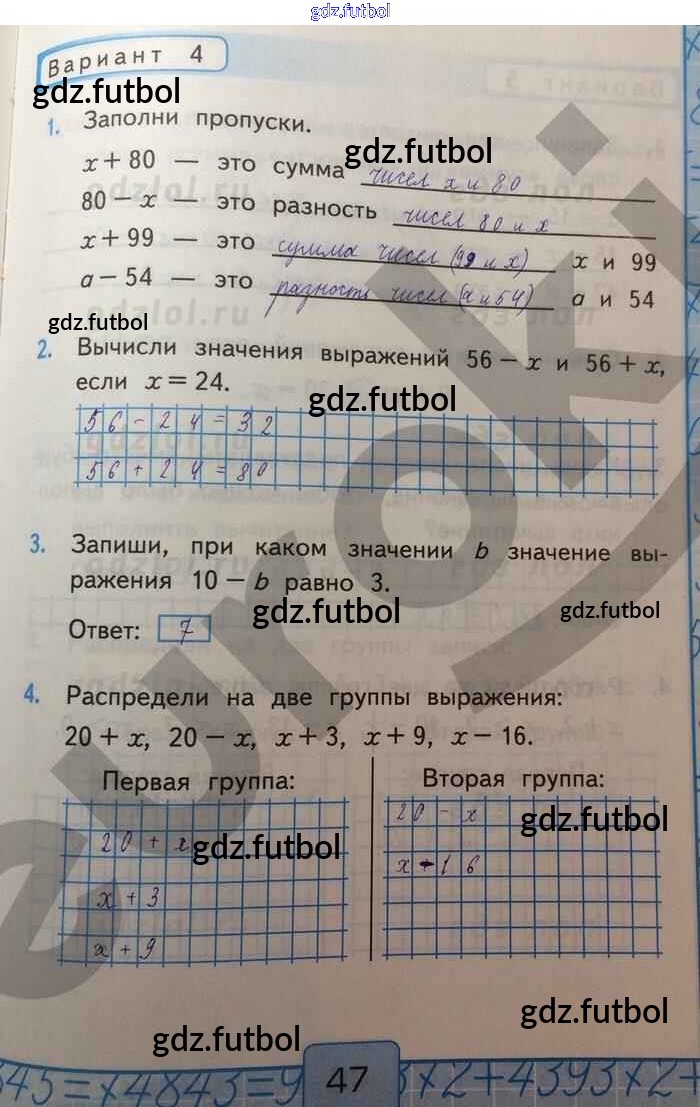 gdz.futbol
Вариант 4
gdz.futbol
1. Заполни пропуски.
gdz.futbol
x + 80 — это сумма чисел x и 80
80 − x — это разность чисел 80 и x
x + 99 — это сумма чисел (99 и x) x и 99
a − 54 — это разность чисел (a и 54) a и 54
gdz.futbol
2. Вычисли значения выражений 56 − x и 56 + x,
если x = 24.
gdz.futbol
56 − 24 = 32
56 + 24 = 80
3. Запиши, при каком значении b значение вы-
ражения 10 − b равно 3.
gdz.futbol gdz.futbol
Ответ: 7
4. Распредели на две группы выражения:
20 + x, 20 − x, x + 3, x + 9, x − 16.
Первая группа: Вторая группа:
20 − x
gdz.futbol
20 + x
gdz.futbol
x − 16
x + 3
x + 9
gdz.futbol
gdz.futbol
euroki
345=x4843=9 47 3x2+4393x2+